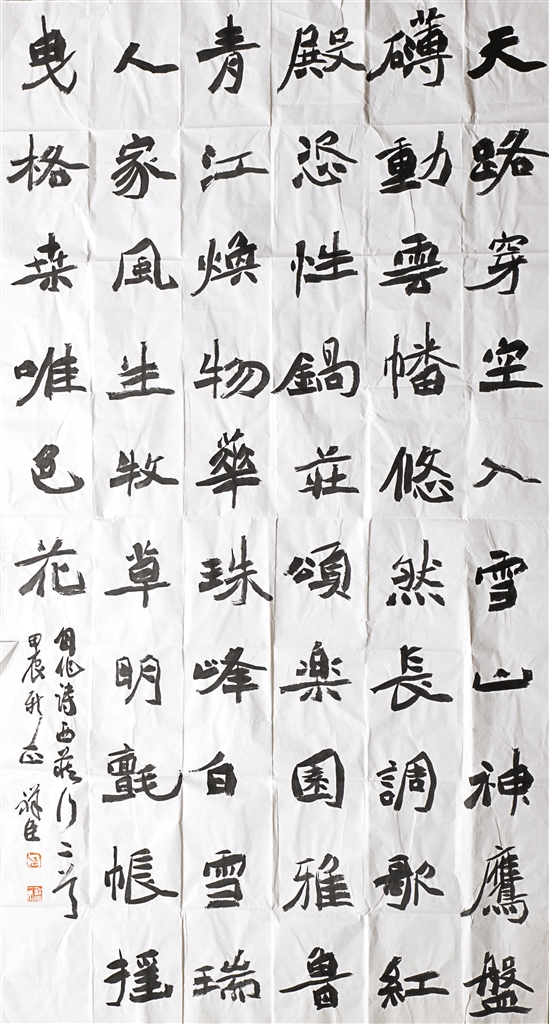 天路穿空入雪山神鷹盤
礴動雲幡悠然長調歌紅
殿恣性鍋莊頌楽園雅魯
青江煥物華珠峰白雪瑞
人家風生牧草明氈帳摇
曳格桒唯色花
自作詩西藏行二首
甲辰秋 祥臣